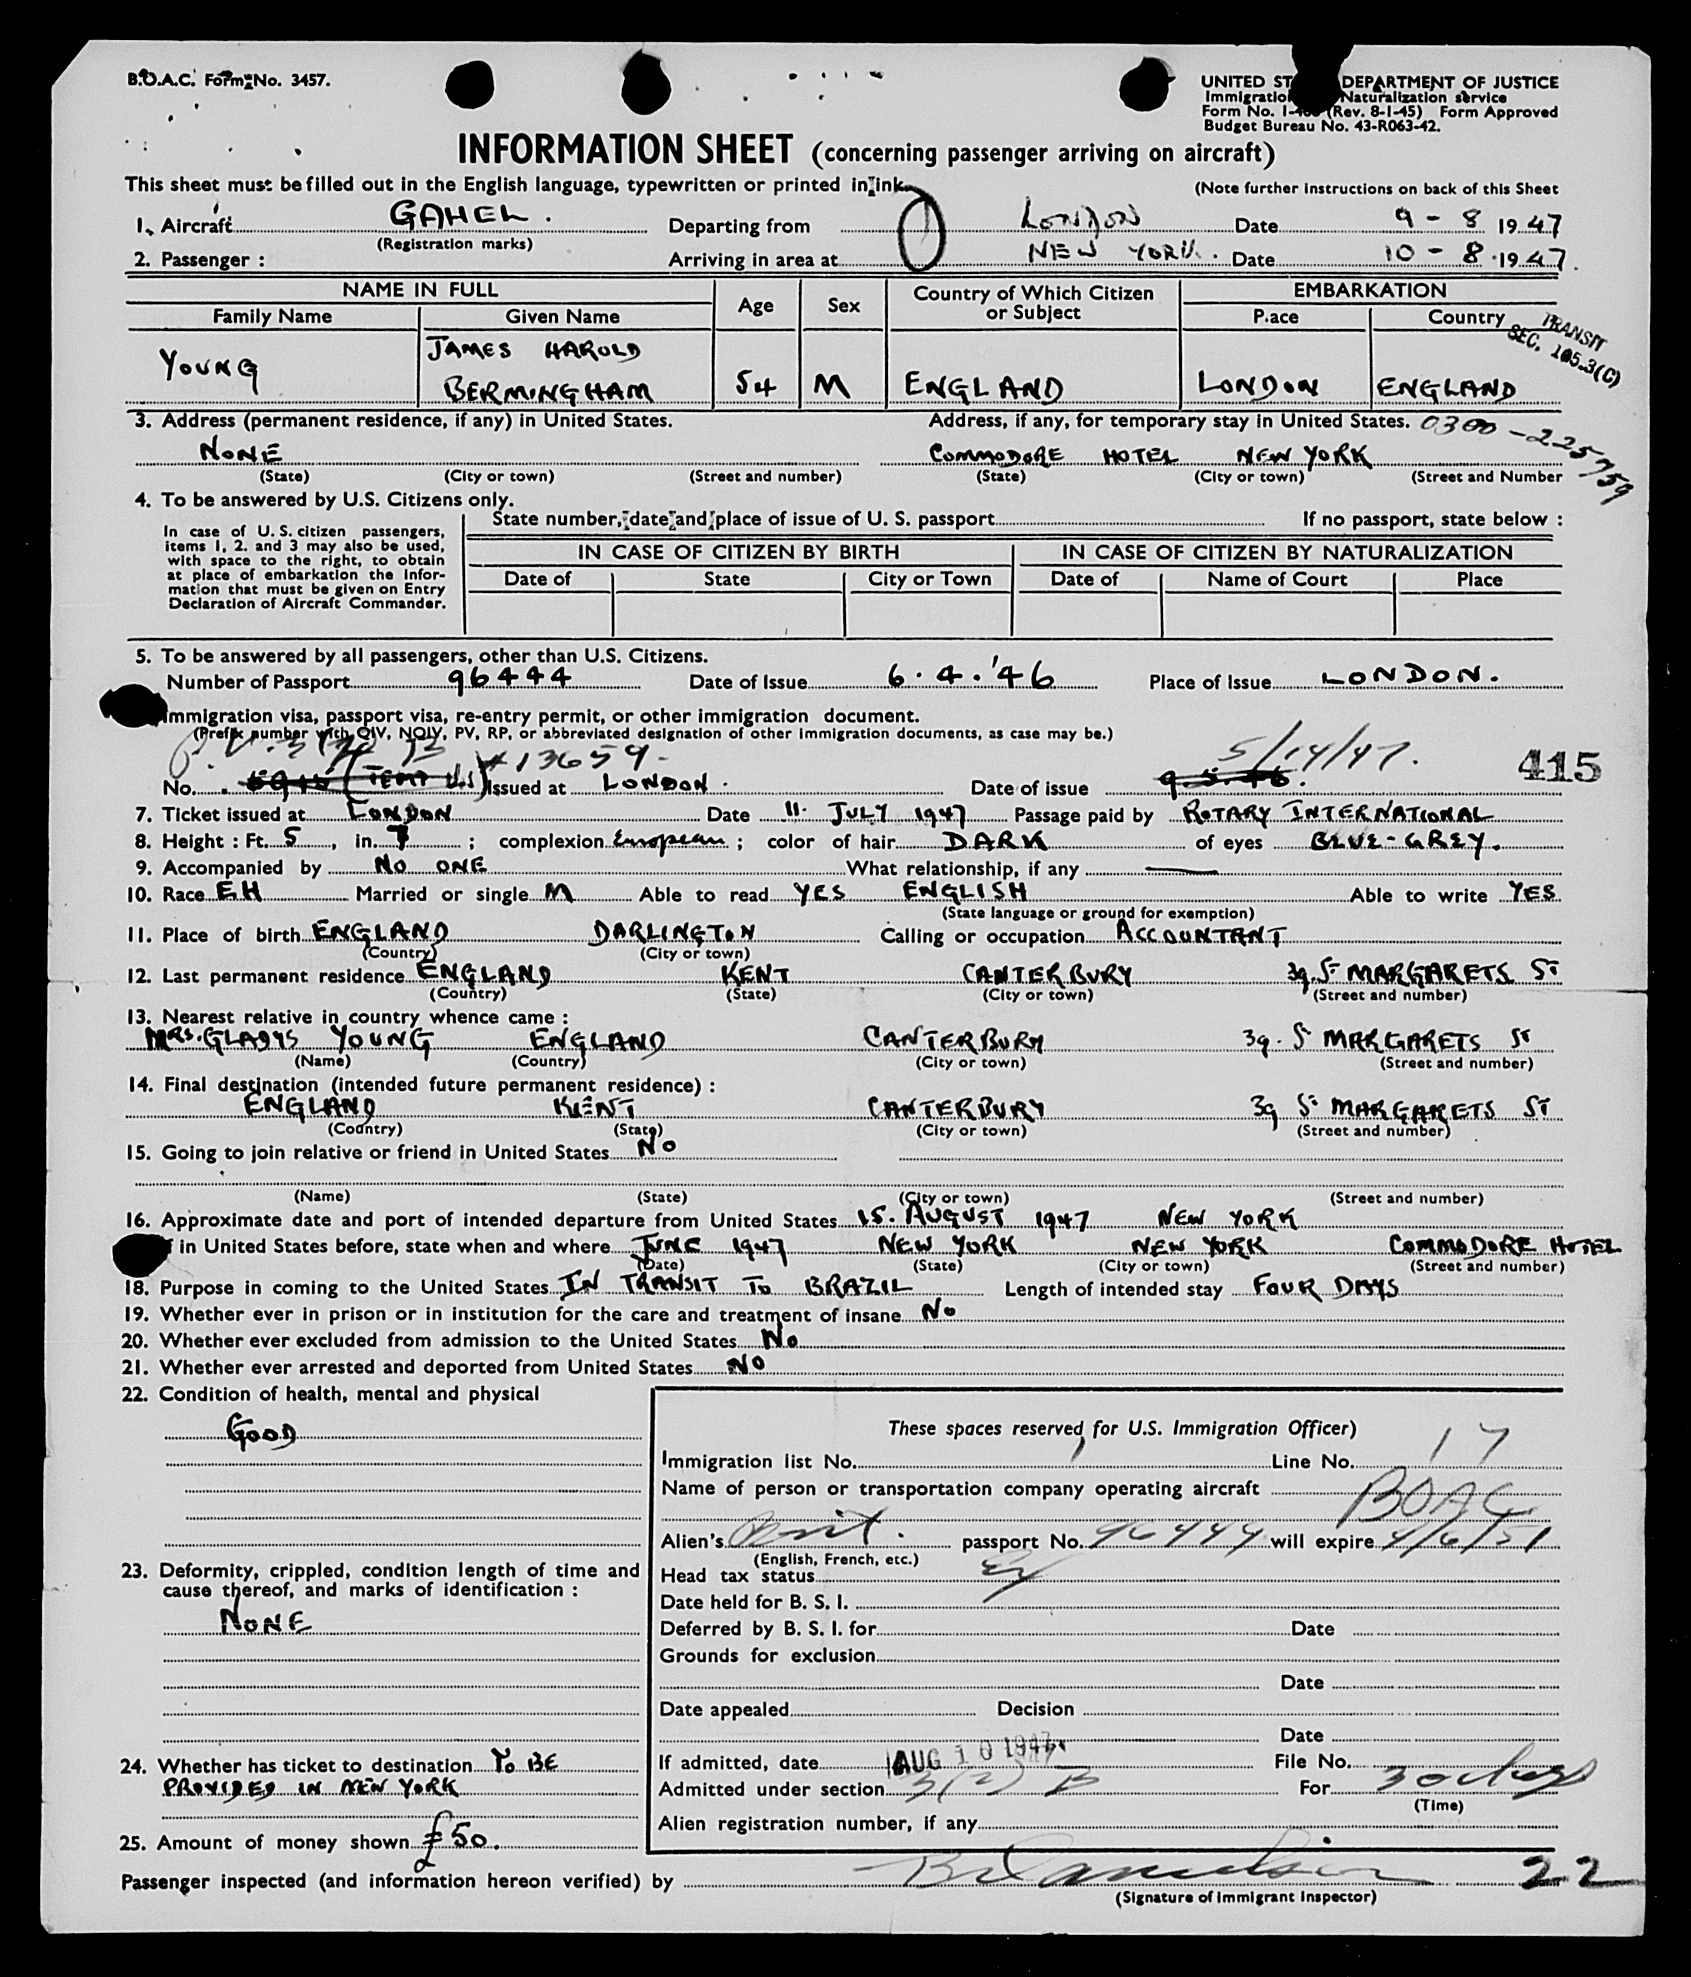 B.O.A.C. Form No. 3457.
UNITED ST DEPARTMENT OF JUSTICE
Immigratio Naturalization service
Form No. I- (Rev. 8-1-45) Form Approved
Budget Bureau No. 43-R063-42.
INFORMATION SHEET (concerning passenger arriving on aircraft)
This sheet must be filled out in the English language, typewritten or printed in ink.
(Note further instructions on back of this Sheet
1. Aircraft GAHEL. Departing from LONDON Date 9 - 8 1947
(Registration marks)
2. Passenger : Arriving in area at NEW YORK. Date 10 - 8 1947.
NAME IN FULL Age Sex Country of Which Citizen or Subject EMBARKATION
Family Name Given Name Place Country
TRANSIT
SEC. 105.3(C)
YOUNG JAMES HAROLD BERMINGHAM 54 M ENGLAND LONDON ENGLAND
3. Address (permanent residence, if any) in United States. Address, if any, for temporary stay in United States. 0300-225759
NONE COMMODORE HOTEL NEW YORK
(State) (City or town) (Street and number) (State) (City or town) (Street and Number
4. To be answered by U.S. Citizens only.
In case of U.S. citizen passengers, items 1, 2. and 3 may also be used, with space to the right, to obtain at place of embarkation the Information that must be given on Entry Declaration of Aircraft Commander.
State number, date and place of issue of U. S. passport If no passport, state below :
IN CASE OF CITIZEN BY BIRTH IN CASE OF CITIZEN BY NATURALIZATION
Date of State City or Town Date of Name of Court Place
5. To be answered by all passengers, other than U.S. Citizens.
Number of Passport 96444 Date of Issue 6.4.'46 Place of Issue LONDON.
Immigration visa, passport visa, re-entry permit, or other immigration document.
(Prefix number with QIV, NQIV, PV, RP, or abbreviated designation of other immigration documents, as case may be.)
#13659. 5/14/47. 415
No. Issued at LONDON. Date of issue
7. Ticket issued at LONDON Date 11. JULY 1947 Passage paid by ROTARY INTERNATIONAL
8. Height : Ft. 5, in. 7 ; complexion European ; color of hair DARK of eyes BLUE-GREY.
9. Accompanied by NO ONE What relationship, if any —
10. Race EH Married or single M Able to read YES ENGLISH Able to write YES
(State language or ground for exemption)
11. Place of birth ENGLAND DARLINGTON Calling or occupation ACCOUNTANT
(Country) (City or town)
12. Last permanent residence ENGLAND KENT CANTERBURY 39. ST MARGARETS ST
(Country) (State) (City or town) (Street and number)
13. Nearest relative in country whence came :
MRS. GLADYS YOUNG ENGLAND CANTERBURY 39. ST MARGARETS ST
(Name) (Country) (City or town) (Street and number)
14. Final destination (intended future permanent residence) :
ENGLAND KENT CANTERBURY 39 ST MARGARETS ST
(Country) (State) (City or town) (Street and number)
15. Going to join relative or friend in United States NO
(Name) (State) (City or town) (Street and number)
16. Approximate date and port of intended departure from United States 15. AUGUST 1947 NEW YORK
in United States before, state when and where JUNE 1947 NEW YORK NEW YORK COMMODORE HOTEL
(Date) (State) (City or town) (Street and number)
18. Purpose in coming to the United States IN TRANSIT TO BRAZIL Length of intended stay FOUR DAYS
19. Whether ever in prison or in institution for the care and treatment of insane NO
20. Whether ever excluded from admission to the United States NO
21. Whether ever arrested and deported from United States NO
22. Condition of health, mental and physical
GOOD
23. Deformity, crippled, condition length of time and cause thereof, and marks of identification :
NONE
24. Whether has ticket to destination TO BE
PROVIDED IN NEW YORK
25. Amount of money shown £50.
These spaces reserved for U.S. Immigration Officer)
Immigration list No. 1 Line No. 17
Name of person or transportation company operating aircraft BOAC
Alien's Brit. passport No. 96444 will expire 4/6/51
(English, French, etc.)
Head tax status
Date held for B. S. I.
Deferred by B. S. I. for Date
Grounds for exclusion
Date
Date appealed Decision
Date
If admitted, date AUG 10 1947 File No.
Admitted under section 3(2) B For 30 days
(Time)
Alien registration number, if any
Passenger inspected (and information hereon verified) by 22
(Signature of Immigrant Inspector)